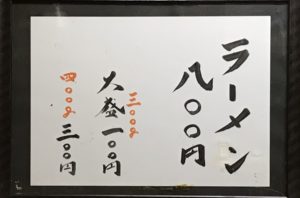 ラーメン
八〇〇円
三〇〇g
大盛一〇〇円
四〇〇g
三〇〇円